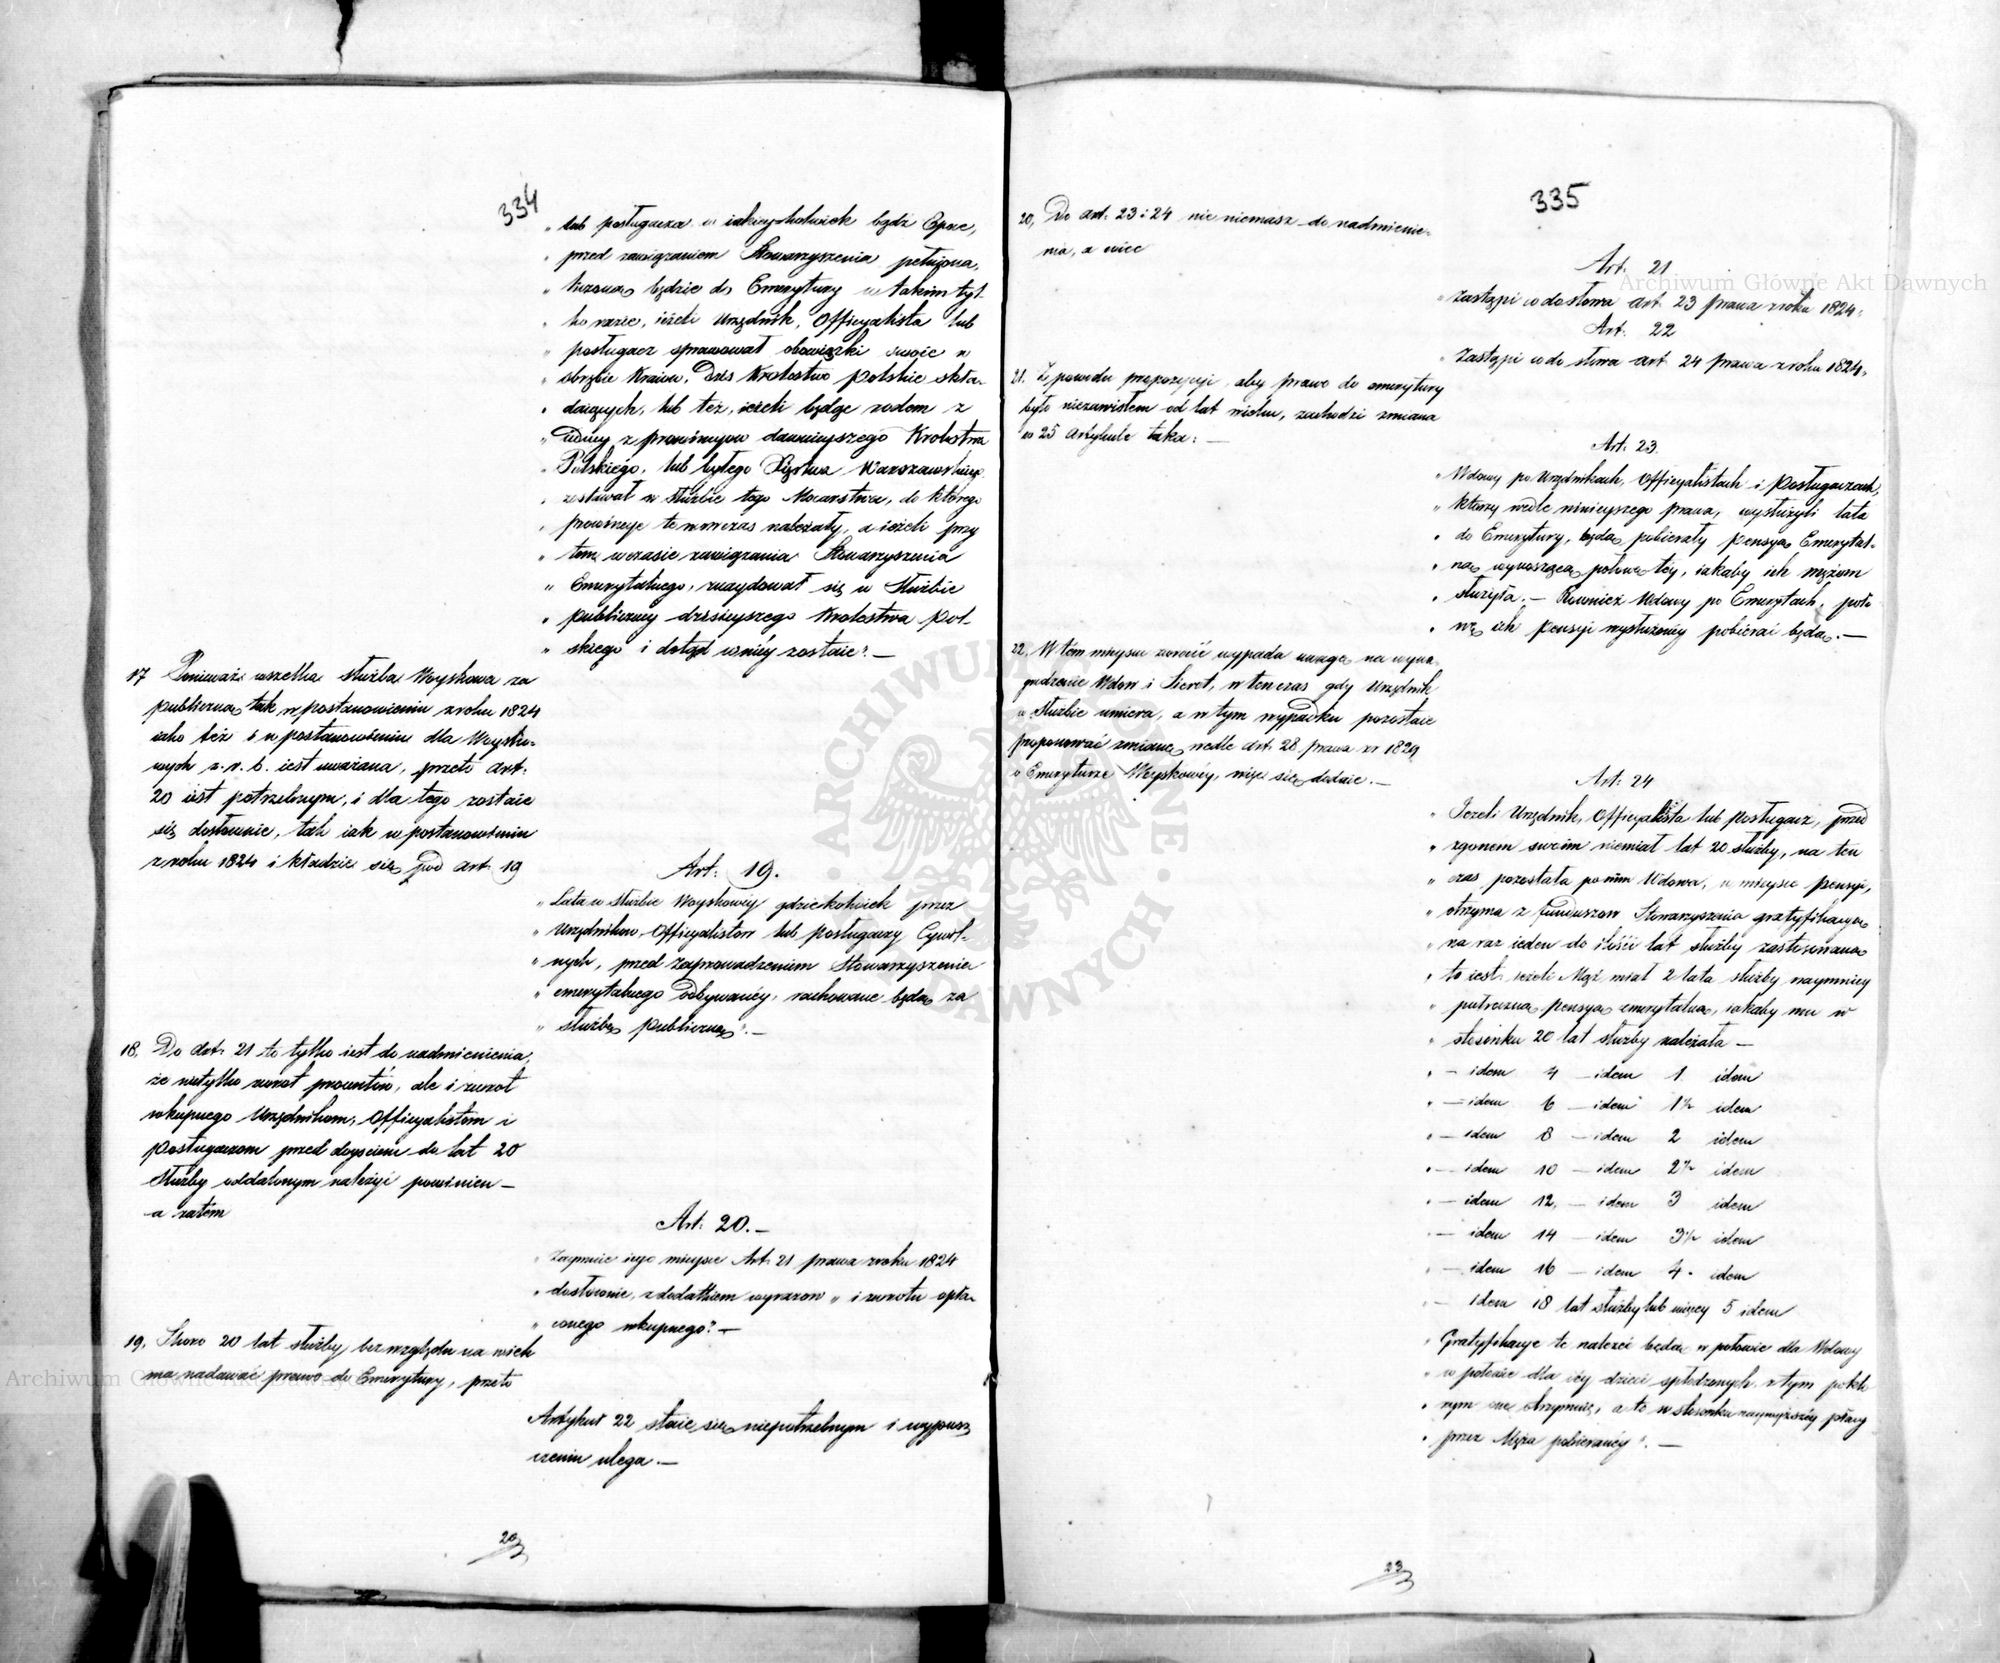 334
„ lub posługacza w iakieykolwiek bądź Epoce,
„ przed zawiązaniem Stowarzyszenia pełniona,
„ liczona będzie do Emerytury w takim tyl-
„ ko razie, ieżeli Urzędnik, Officyalista lub
„ posługacz sprawował obowiązki swoie w
„ obrębie Kraiow, Dziś Krolestwo Polskie skła-
„ daiących, lub też, ieżeli będąc rodem z
„ iedney z prowincyow dawnieyszego Krolestwa
„ Polskiego, lub byłego Xięstwa Warszawskiego
„ zostawał w służbie tego Mocarstwa, do którego
„ prowincye te wowczas należały, a ieżeli przy
„ tem w czasie zawiązania Stowarzyszenia
„ Emerytalnego, znaydował się w Służbie
„ publiczney dzisieyszego Krolestwa Pol-
„ skiego i dotąd w niéy zostaie". —
17 Ponieważ wszelka służba Woyskowa za
publiczną tak w postanowieniu z roku 1824
iako też i w postanowieniu dla Woysko-
wych z. r. b. iest uważana, przeto art:
20 iest potrzebnym, i dla tego zostaie
się dosłownie, tak iak w postanowieniu
z roku 1824 i kładzie się pod art: 19
Art: 19.
„ Lata w Służbie Woyskowéy gdziekolwiek przez
„ Urzędnikow, Officyalistow lub posługaczy Cywil-
„ nych, przed zaprowadzeniem Stowarzyszenia
„ emerytalnego odbywanéy, rachowane będą za
„ służbę publiczną". —
18. Do Art: 21 to tylko iest do nadmienienia,
że nietylko zwrot procentów, ale i zwrot
wkupnego Urzędnikom, Officyalistom i
posługaczom przed doyściem do lat 20
Służby oddalonym należyć powinien —
a zatém
Art: 20. —
„ Zaymuie iego mieysce Art: 21 prawa z roku 1824
„ dosłownie, z dodatkiem wyrazow „ i zwrotu opła-
„ conego wkupnego". —
19. Skoro 20 lat służby, bez względu na wiek
ma nadawać prawo do Emerytury, przeto
Artykuł 22 staie się niepotrzebnym i wypusz-
czeniu ulega. —
335
20, Do Art: 23 i 24 nic niemasz do nadmienie-
nia, a wiec
Art: 21
„ Zastąpi co do słowa art. 23 prawa z roku 1824.
Art: 22
„ Zastąpi co do słowa art 24 prawa z roku 1824.
21. Z powodu propozycyi, aby prawo do emerytury
było niezawisłem od lat wieku, zachodzi zmiana
w 25 Artykule taka: —
Art: 23.
„ Wdowy po Urzędnikach, Officyalistach i Posługaczach,
„ ktorzy wedle ninieyszego prawa, wysłużyli lata
„ do Emerytury, będą pobierały pensyą Emerytal-
„ ną wynoszącą połowę téy, iakaby ich mężom
„ służyła. — Rownież Wdowy po Emerytach, poło
„ wę ich pensyi wysłużonéy pobierać będą. —
22. W tem mieyscu zwrocić wypada uwagę na wyna-
grodzenie Wdow i Sierot, w ten czas gdy Urzędnik
w służbie umiera, a w tym wypadku pozostaie
proponować zmianę wedle art: 28 prawa z r 1829,
o Emeryturze Woyskowéy, więc się dodaie. —
Art: 24
„ Jeżeli Urzędnik, Officyalista lub posługacz, przed
„ zgonem swoim niemiał lat 20 służby, na ten
„ czas pozostała po nim Wdowa, w mieysce pensyi,
„ otrzyma z funduszow Stowarzyszenia gratyfikacyą
„ na raz ieden do ilości lat służby zastosowaną
„ to iest, ieżeli Mąż miał 2 lata służby naymniey
„ pułroczną pensyą emerytalną, iakaby mu w
„ stosunku 20 lat służby należała —
„ — idem 4 — idem 1. idem
„ — idem 6 — idem 1½ idem
„ — idem 8 — idem 2 idem
„ — idem 10 — idem 2½ idem
„ — idem 12, — idem 3 idem
„ — idem 14 — idem 3½ idem
„ — idem 16 — idem 4. idem
„ — idem 18 lat służby lub więcey 5 idem
„ Gratyfikacye te należeć będą w połowie dla Wdowy
„ w połowie dla iéy dzieci spłodzonych z tym po któ
„ rym one otrzymuie, a to w stosunku naywyższéy płacy
„ przez Męża pobieranéy". —
Archiwum Główne Akt Dawnych
Archiwum Główne Akt Dawnych
ARCHIWUM GŁÓWNE AKT DAWNYCH